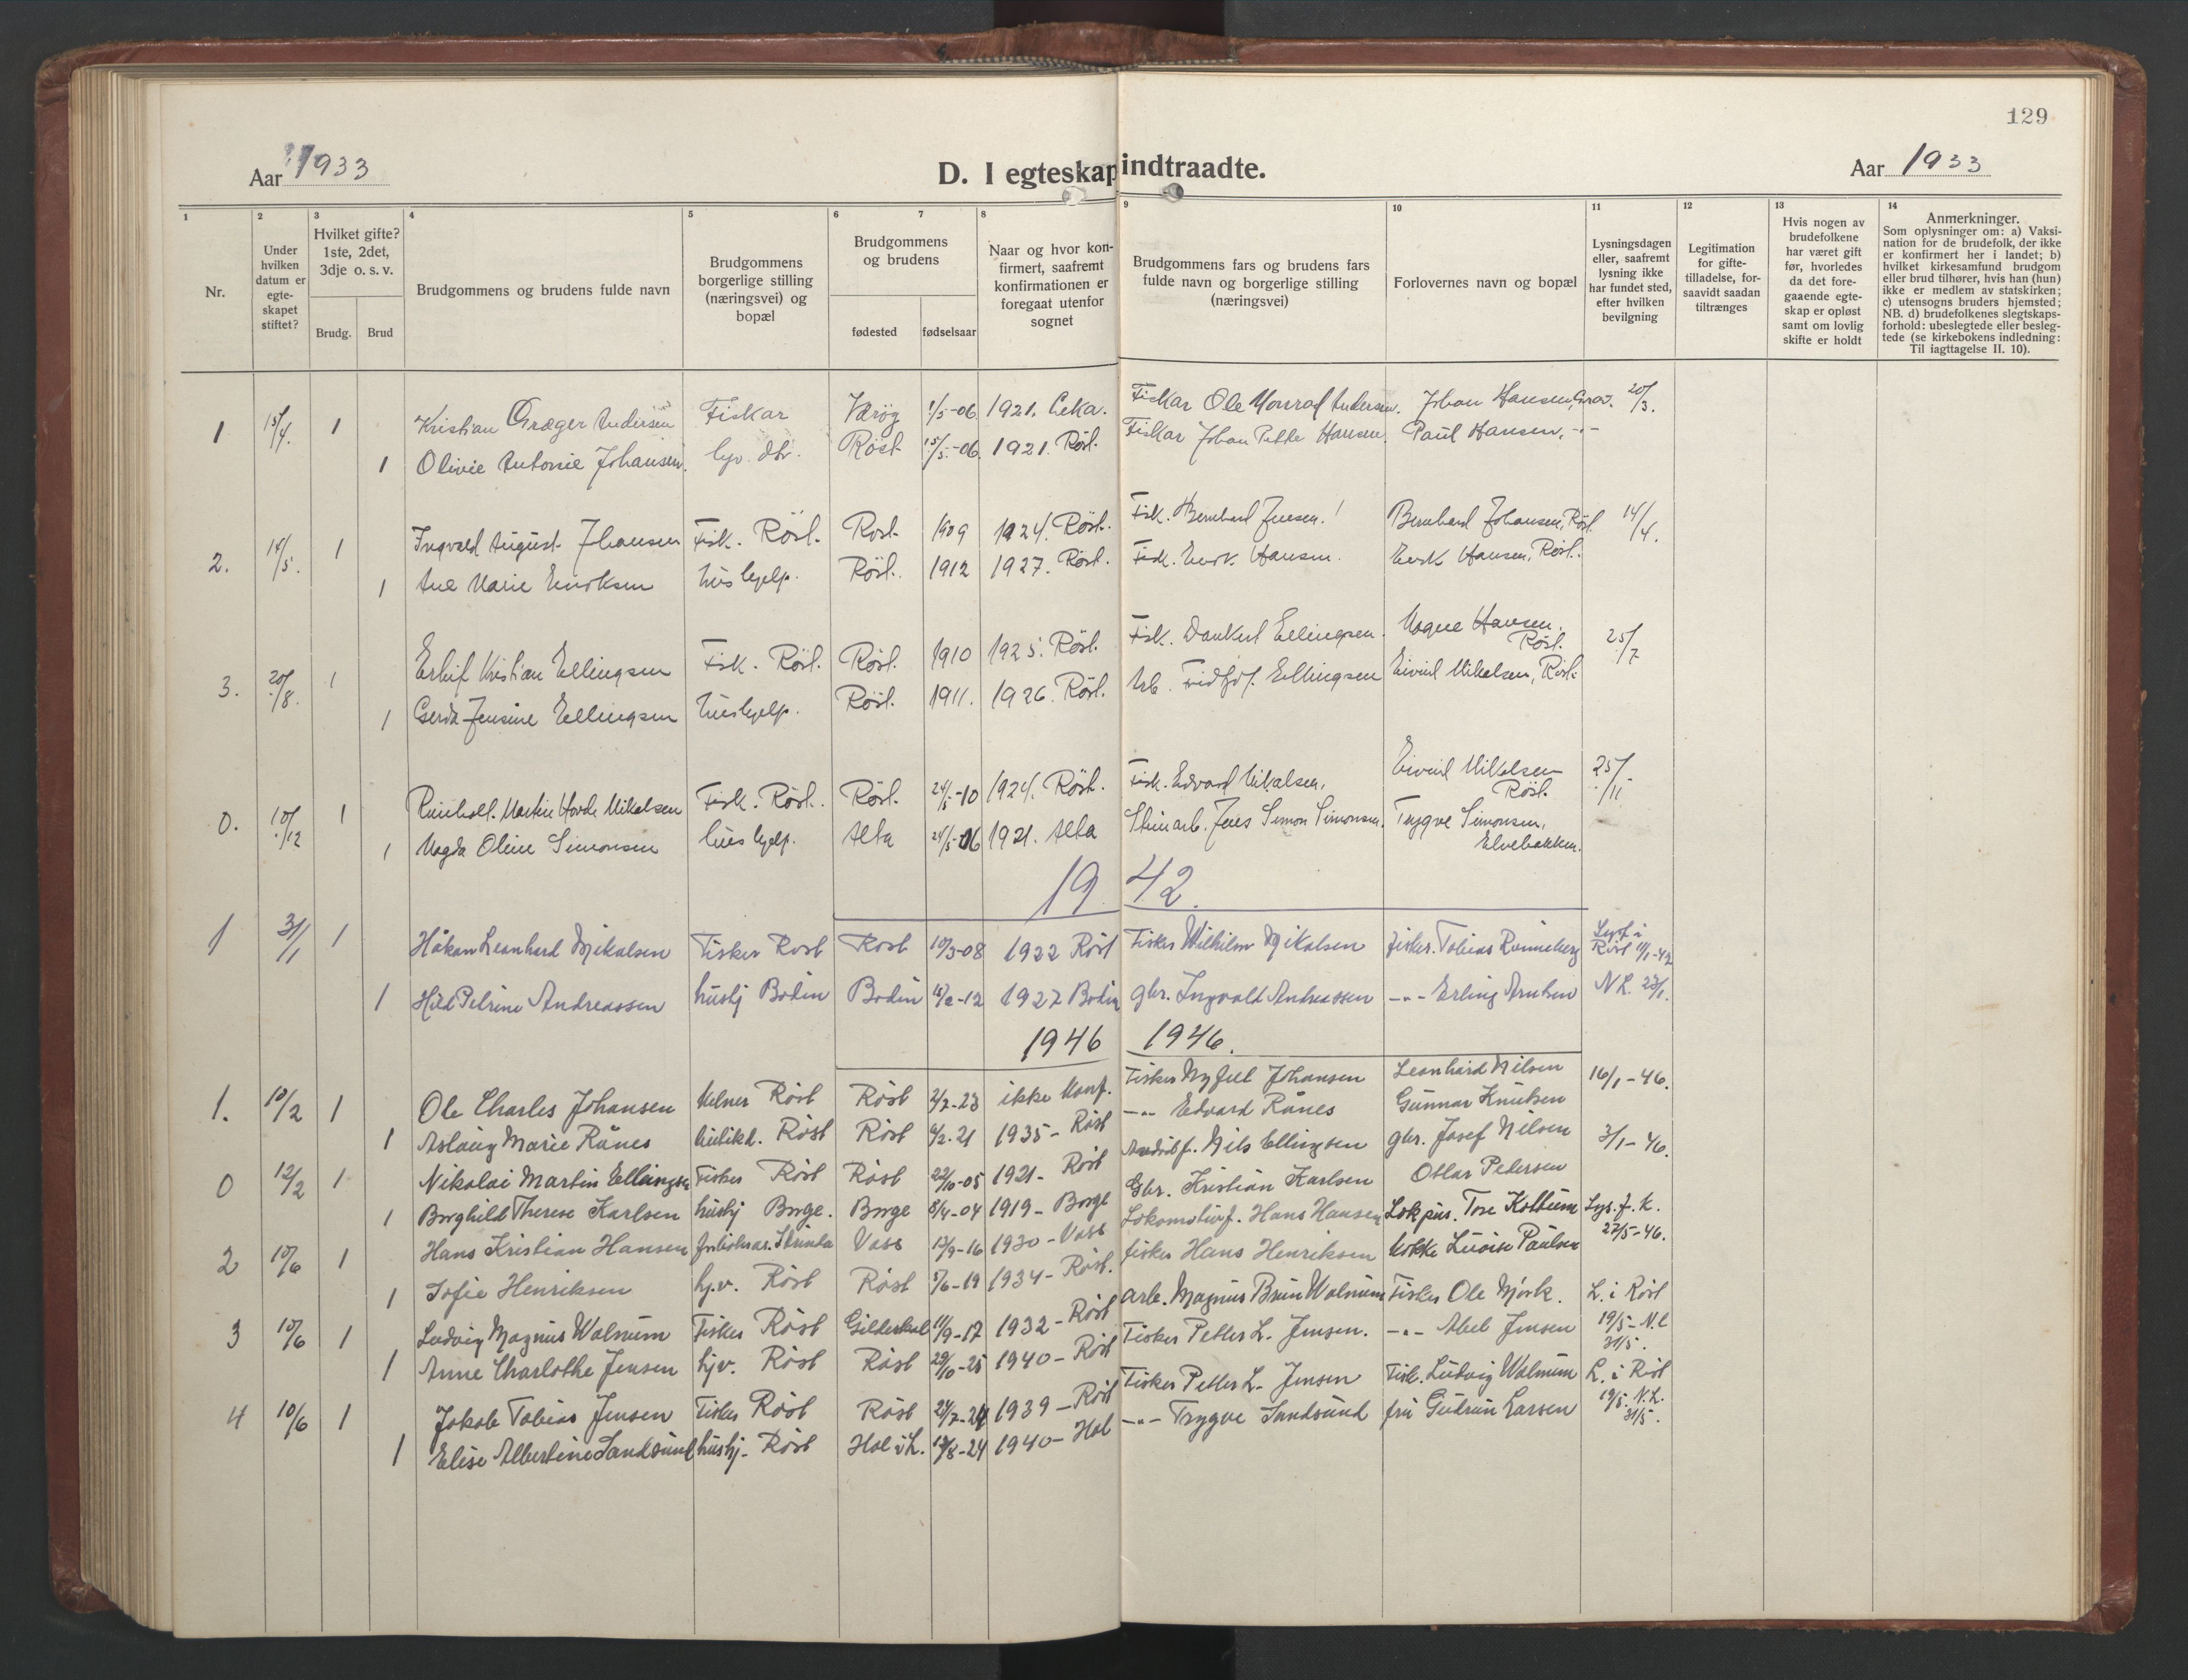 129
Aar 1933
D. I egteskap indtraadte.
Aar 1933
1 2 3 4 5 6 7 8 9 10 11 12 13 14
Nr.
Under hvilken datum er egte- skapet stiftet?
Hvilket gifte? 1ste, 2det, 3dje o. s. v.
Brudg. Brud
Brudgommens og brudens fulde navn
Brudgommens borgerlige stilling (næringsvei) og bopæl
Brudgommens og brudens
fødested fødselsaar
Naar og hvor kon- firmert, saafremt konfirmationen er foregaat utenfor sognet
Brudgommens fars og brudens fars fulde navn og borgerlige stilling (næringsvei)
Forlovernes navn og bopæl
Lysningsdagen eller, saafremt lysning ikke har fundet sted, efter hvilken bevilgning
Legitimation for gifte- tilladelse, for- saavidt saadan tiltrænges
Hvis nogen av brudefolkene har været gift før, hvorledes da det fore- gaaende egte- skap er opløst samt om lovlig skifte er holdt
Anmerkninger.
Som oplysninger om: a) Vaksi- nation for de brudefolk, der ikke er konfirmert her i landet; b) hvilket kirkesamfund brudgom eller brud tilhører, hvis han (hun) ikke er medlem av statskirken; c) utensogns bruders hjemsted; NB. d) brudefolkenes slegtskaps- forhold: ubeslegtede eller besleg- tede (se kirkebokens indledning: Til iagttagelse II. 10).
1 15/4. 1 Kristian Græger Andersen Fiskar Værøy 1/5-06 1921. Leka. Fiskar Ole Monrad Andersen. Johan Hansen, 20/3.
1 Olivie Antonie Johansen. Røst 15/5-06. 1921. Røst. Fiskar Johan Hansen. Paul Hansen, -"-
2. 14/5. 1 Ingvald August Johansen Fisk. Røst. Røst. 1909 1924. Røst. Fisk. Bernhard Jensen. Bernhard Johansen, Røst. 14/4.
1 Ane Marie Eriksen hushjelp. Røst. 1912 1927. Røst. Fisk. Erik Hansen. Erik Hansen, Røst.
3. 20/8. 1 Erlif Kristian Ellingsen Fisk. Røst. Røst. 1910 1925. Røst. Fisk. Dankert Ellingsen. Magne Hansen. Røst. 25/7
1 Gerda Jensine Ellingsen hushjelp. Røst. 1911. 1926. Røst. Arb. Fridtjof. Ellingsen Eivind Mikalsen, Røst.
0. 10/12 1 Reinholt. Martin Mikalsen Fisk. Røst. Røst. 24/5-10 1924. Røst. Fisk. Edvard Mikalsen. Eivind Mikalsen Røst. 25/11
1 Magda Oline Simonsen hushjelp. Alta 24/5-06 1921. Alta Stenarb. Jens Simon Simonsen. Trygve Simonsen, Elvebakken.
19 42.
1 31/1 1 Håkon Leonhard Mikalsen Fisker Røst Røst 10/3-08 1922 Røst Fisker Wilhelm Mikalsen fisker. Tobias Rønneberg Lyst i Røst 11/1-42
1 Hild Petrine Andreassen hushj Bodin Bodin 12 1927 Bodin gbr. Ingvald Andreassen -"- Erling Arntsen N L. 23/1.
1946 1946.
1. 10/2 1 Ole Charles Johansen Kelner Røst Røst 2/7-23 ikke konf. Fisker Johansen Leonhard Nilsen 16/1-46.
1 Aslaug Marie Rånes Røst Røst 4/2.21 1935- Røst -"- Edvard Rånes Gunnar Knutsen
0 12/2 1 Nikolai Martin Ellingsen Fisker Røst Røst 22/10-05 1921- Røst Nils Ellingsen gbr. Josef Nilsen 3/1-46.
1 Borghild Therese Karlsen hushj Borge. Borge 8/4-04 1919- Borge Gbr. Kristian Karlsen Ottar Petersen
2 10/6 1 Hans Kristian Hansen Strinda Voss 13/9-16 1930- Voss Lokomotivf. Hans Hansen Lokpus. Tore Kottum Lys. f. K. 27/5-46.
1 Sofie Henriksen hj.v. Røst Røst 5/6-19 1934- Røst. fisker Hans Henriksen kokke Lovise Paulsen
3 10/6 1 Ludvig Magnus Walnum Fisker Røst Gildeskål 11/9-17 1932- Røst arb. Magnus Brun Walnum Fisker Ole Mørk. L. i Røst
1 Anne Charlotte Jensen hjv. Røst Røst 29/10-25 1940- Røst Fisker Petter L. Jensen. -"- Abel Jensen 19/5-N.L 31/5.
4 10/6 1 Jakob Tobias Jensen Fisker Røst Røst 24/7-24 1939- Røst Fisker Petter L. Jensen Fisk. Ludvig Walnum L. i Røst
1 Elise Albertine Sandsund hushj. Røst Hol i L. 12/8-24 1940- Hol -"- Trygve Sandsund fru Gudrun Larsen 19/5. N.L. 31/5.